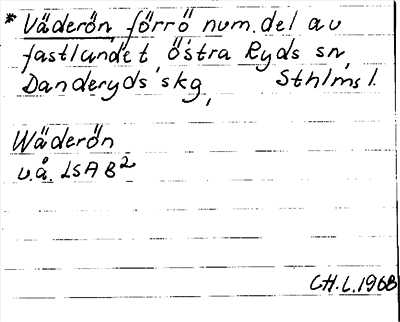 * Väderön, förr ö num. del av
fastlandet, Östra Ryds sn,
Danderyds skg, Sthlms l.
Wäderön
u.å. LSA B2
CH.L. 1968